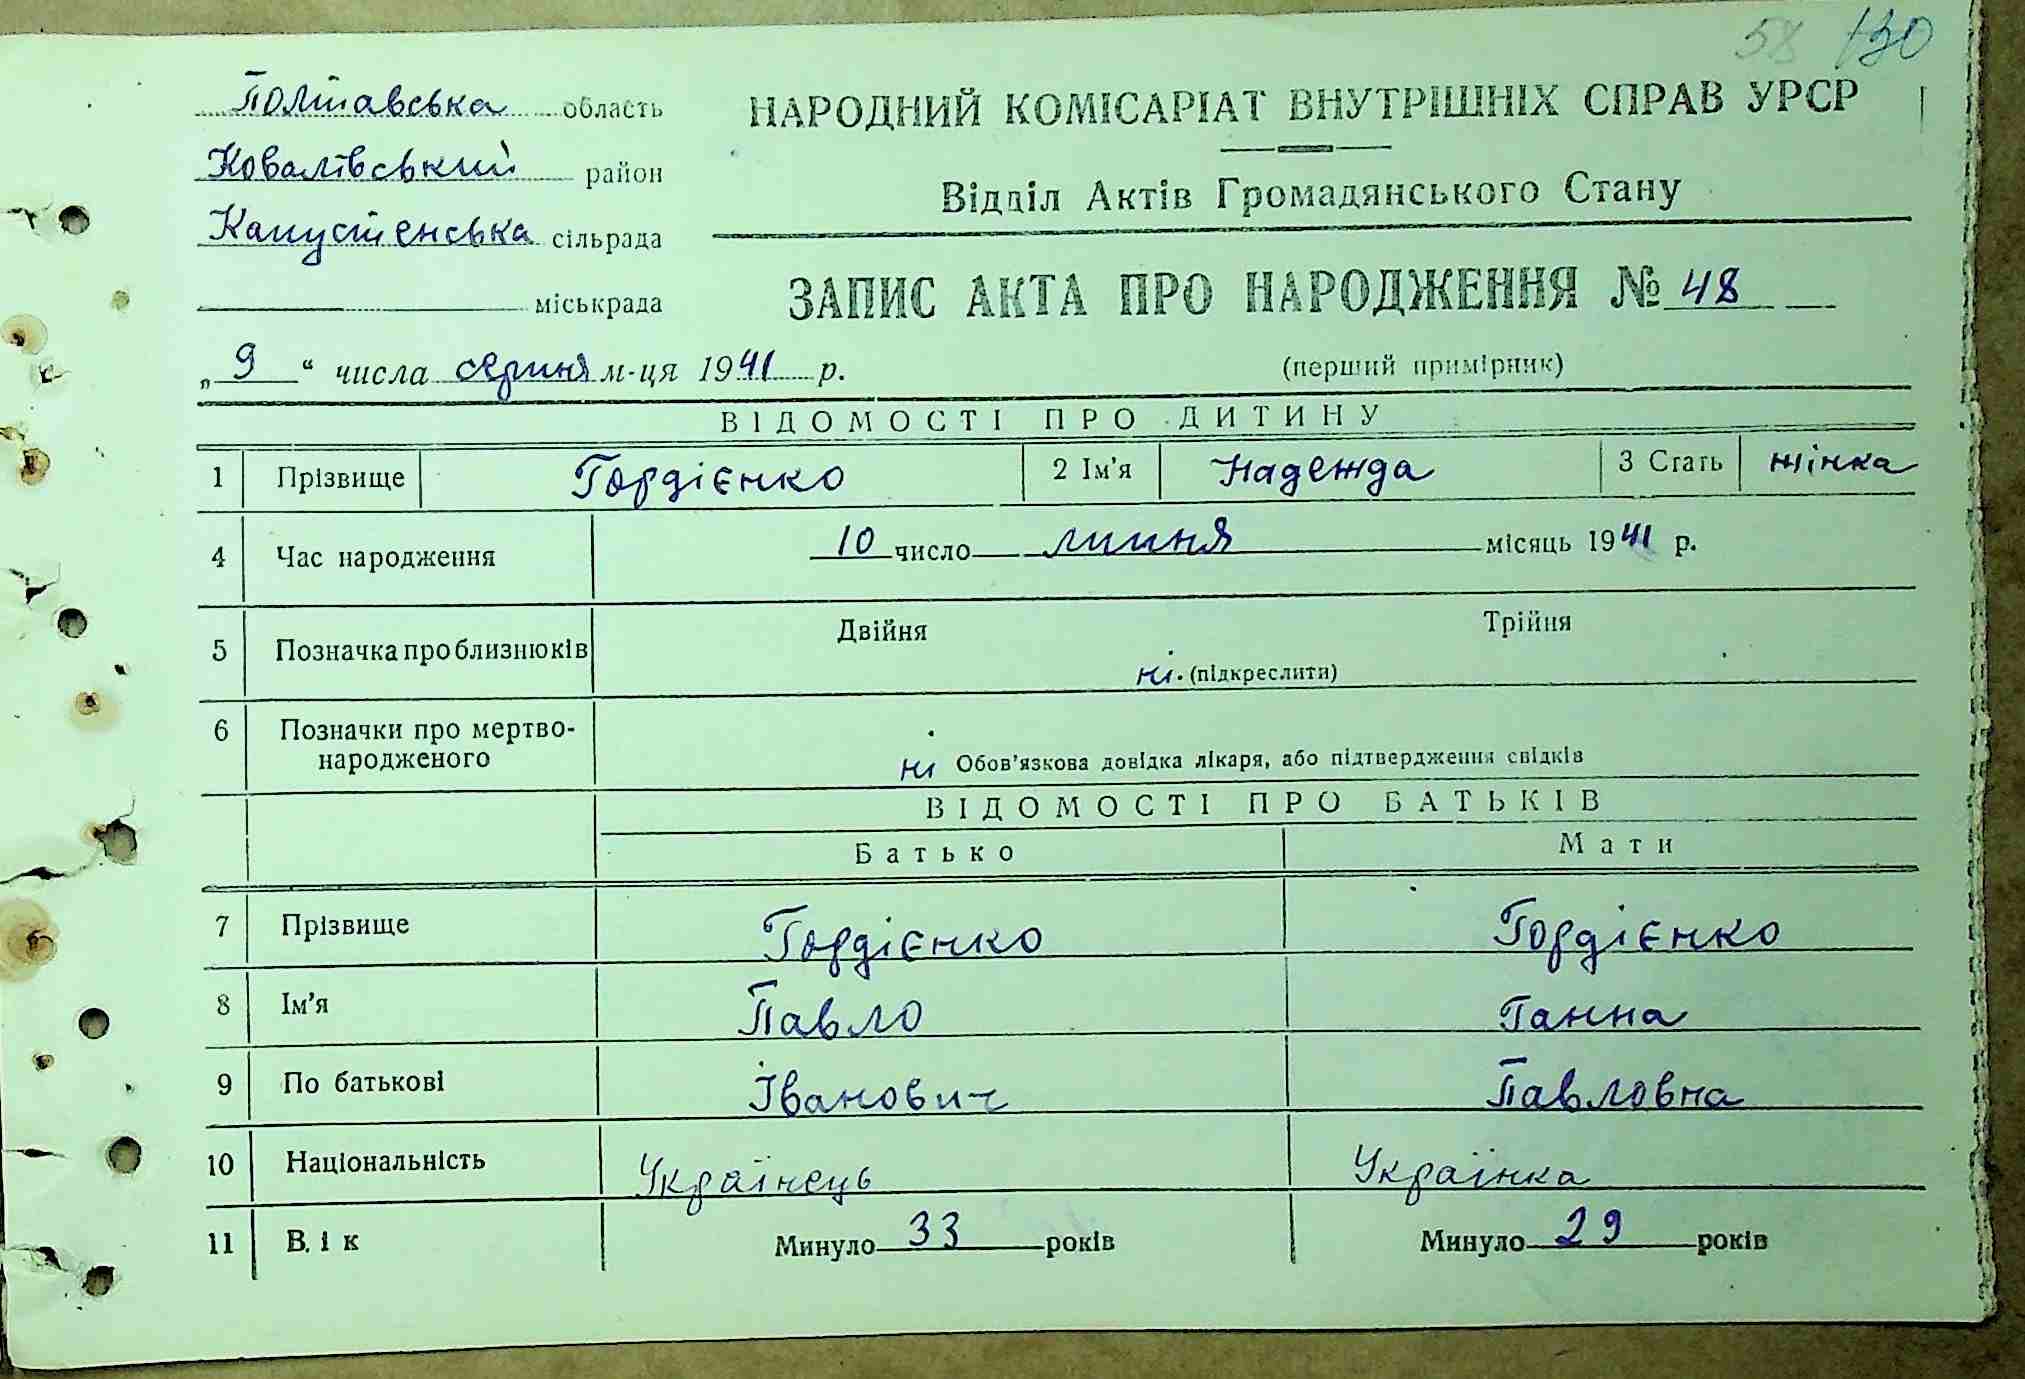 58 130
Полтавська область
Ковалівський район
Капустенська сільрада
міськрада
НАРОДНИЙ КОМІСАРІАТ ВНУТРІШНІХ СПРАВ УРСР
Відділ Актів Громадянського Стану
ЗАПИС АКТА ПРО НАРОДЖЕННЯ № 48
„9“ числа серпня м-ця 1941 р.
(перший примірник)
ВІДОМОСТІ ПРО ДИТИНУ
1 Прізвище Гордієнко 2 Ім'я Надежда 3 Стать жінка
4 Час народження 10 число липня місяць 1941 р.
5 Позначка про близнюків Двійня Трійня
ні. (підкреслити)
6 Позначки про мертво-
народженого
ні Обов'язкова довідка лікаря, або підтвердження свідків
ВІДОМОСТІ ПРО БАТЬКІВ
Батько Мати
7 Прізвище Гордієнко Гордієнко
8 Ім'я Павло Ганна
9 По батькові Іванович Павловна
10 Національність Українець Українка
11 В. і к Минуло 33 років Минуло 29 років